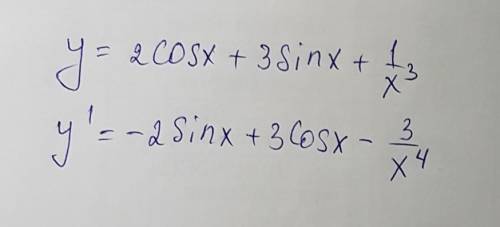 y = 2cosx + 3sinx + 1/x³
y' = -2sinx + 3cosx - 3/x⁴